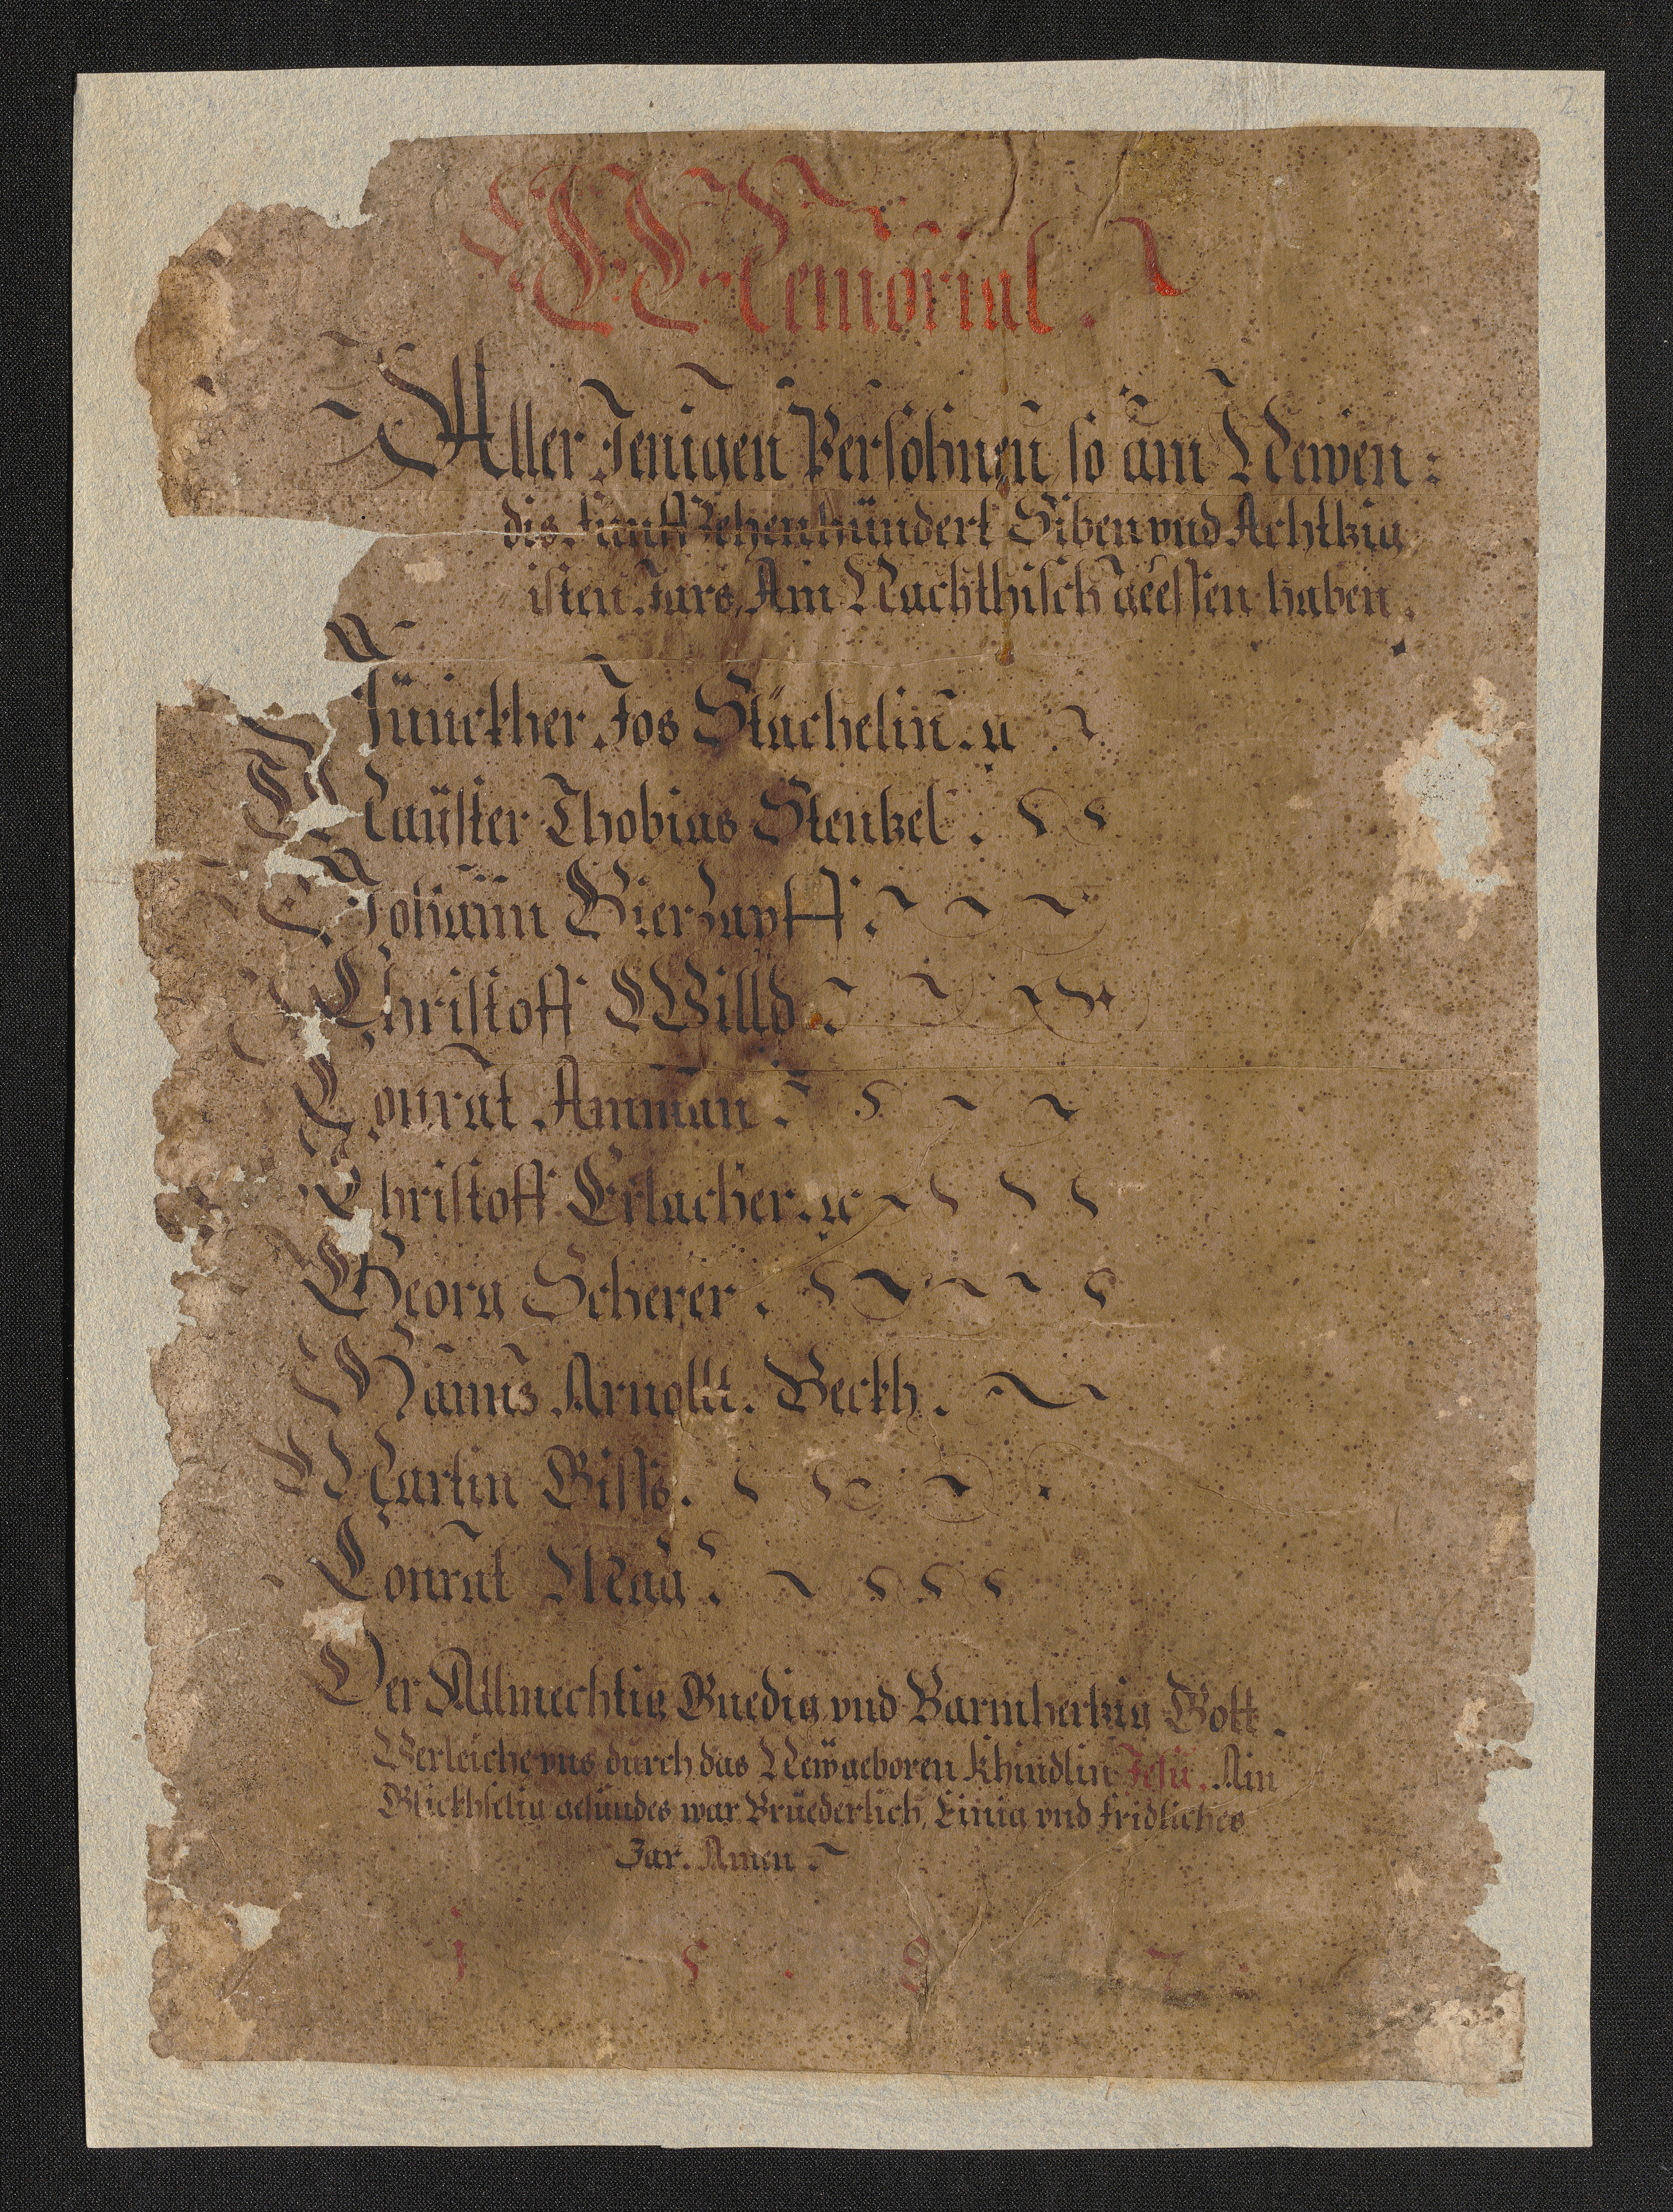 2
Memorial.
Aller Jenigen Persohnen, so am Newen:
dis. funffzehenhündert Siben vnd Achtkzig
isten Jars, Am Nachthisch geessen haben.
Jünckher Jos Stächelin. ꝛc
Maÿster Thobias Stentzel.
Johann Bierzapff.
Christoff Willd.
Conrat Amman.
Christoff Erlacher. ꝛc
Georg Scherer.
Hanns Arnolltt. Beckh.
Martin Biss.
Conrat Maÿ.
Der Allmechtig Gnedig vnd Barmhertzig Gott.
Verleiche vns durch das New geboren Khindlin Jesu, Ain
Glickhselig gesundes war Brüederlich, Einig vnd fridliches
Jar. Amen.
1 5 . 8 7